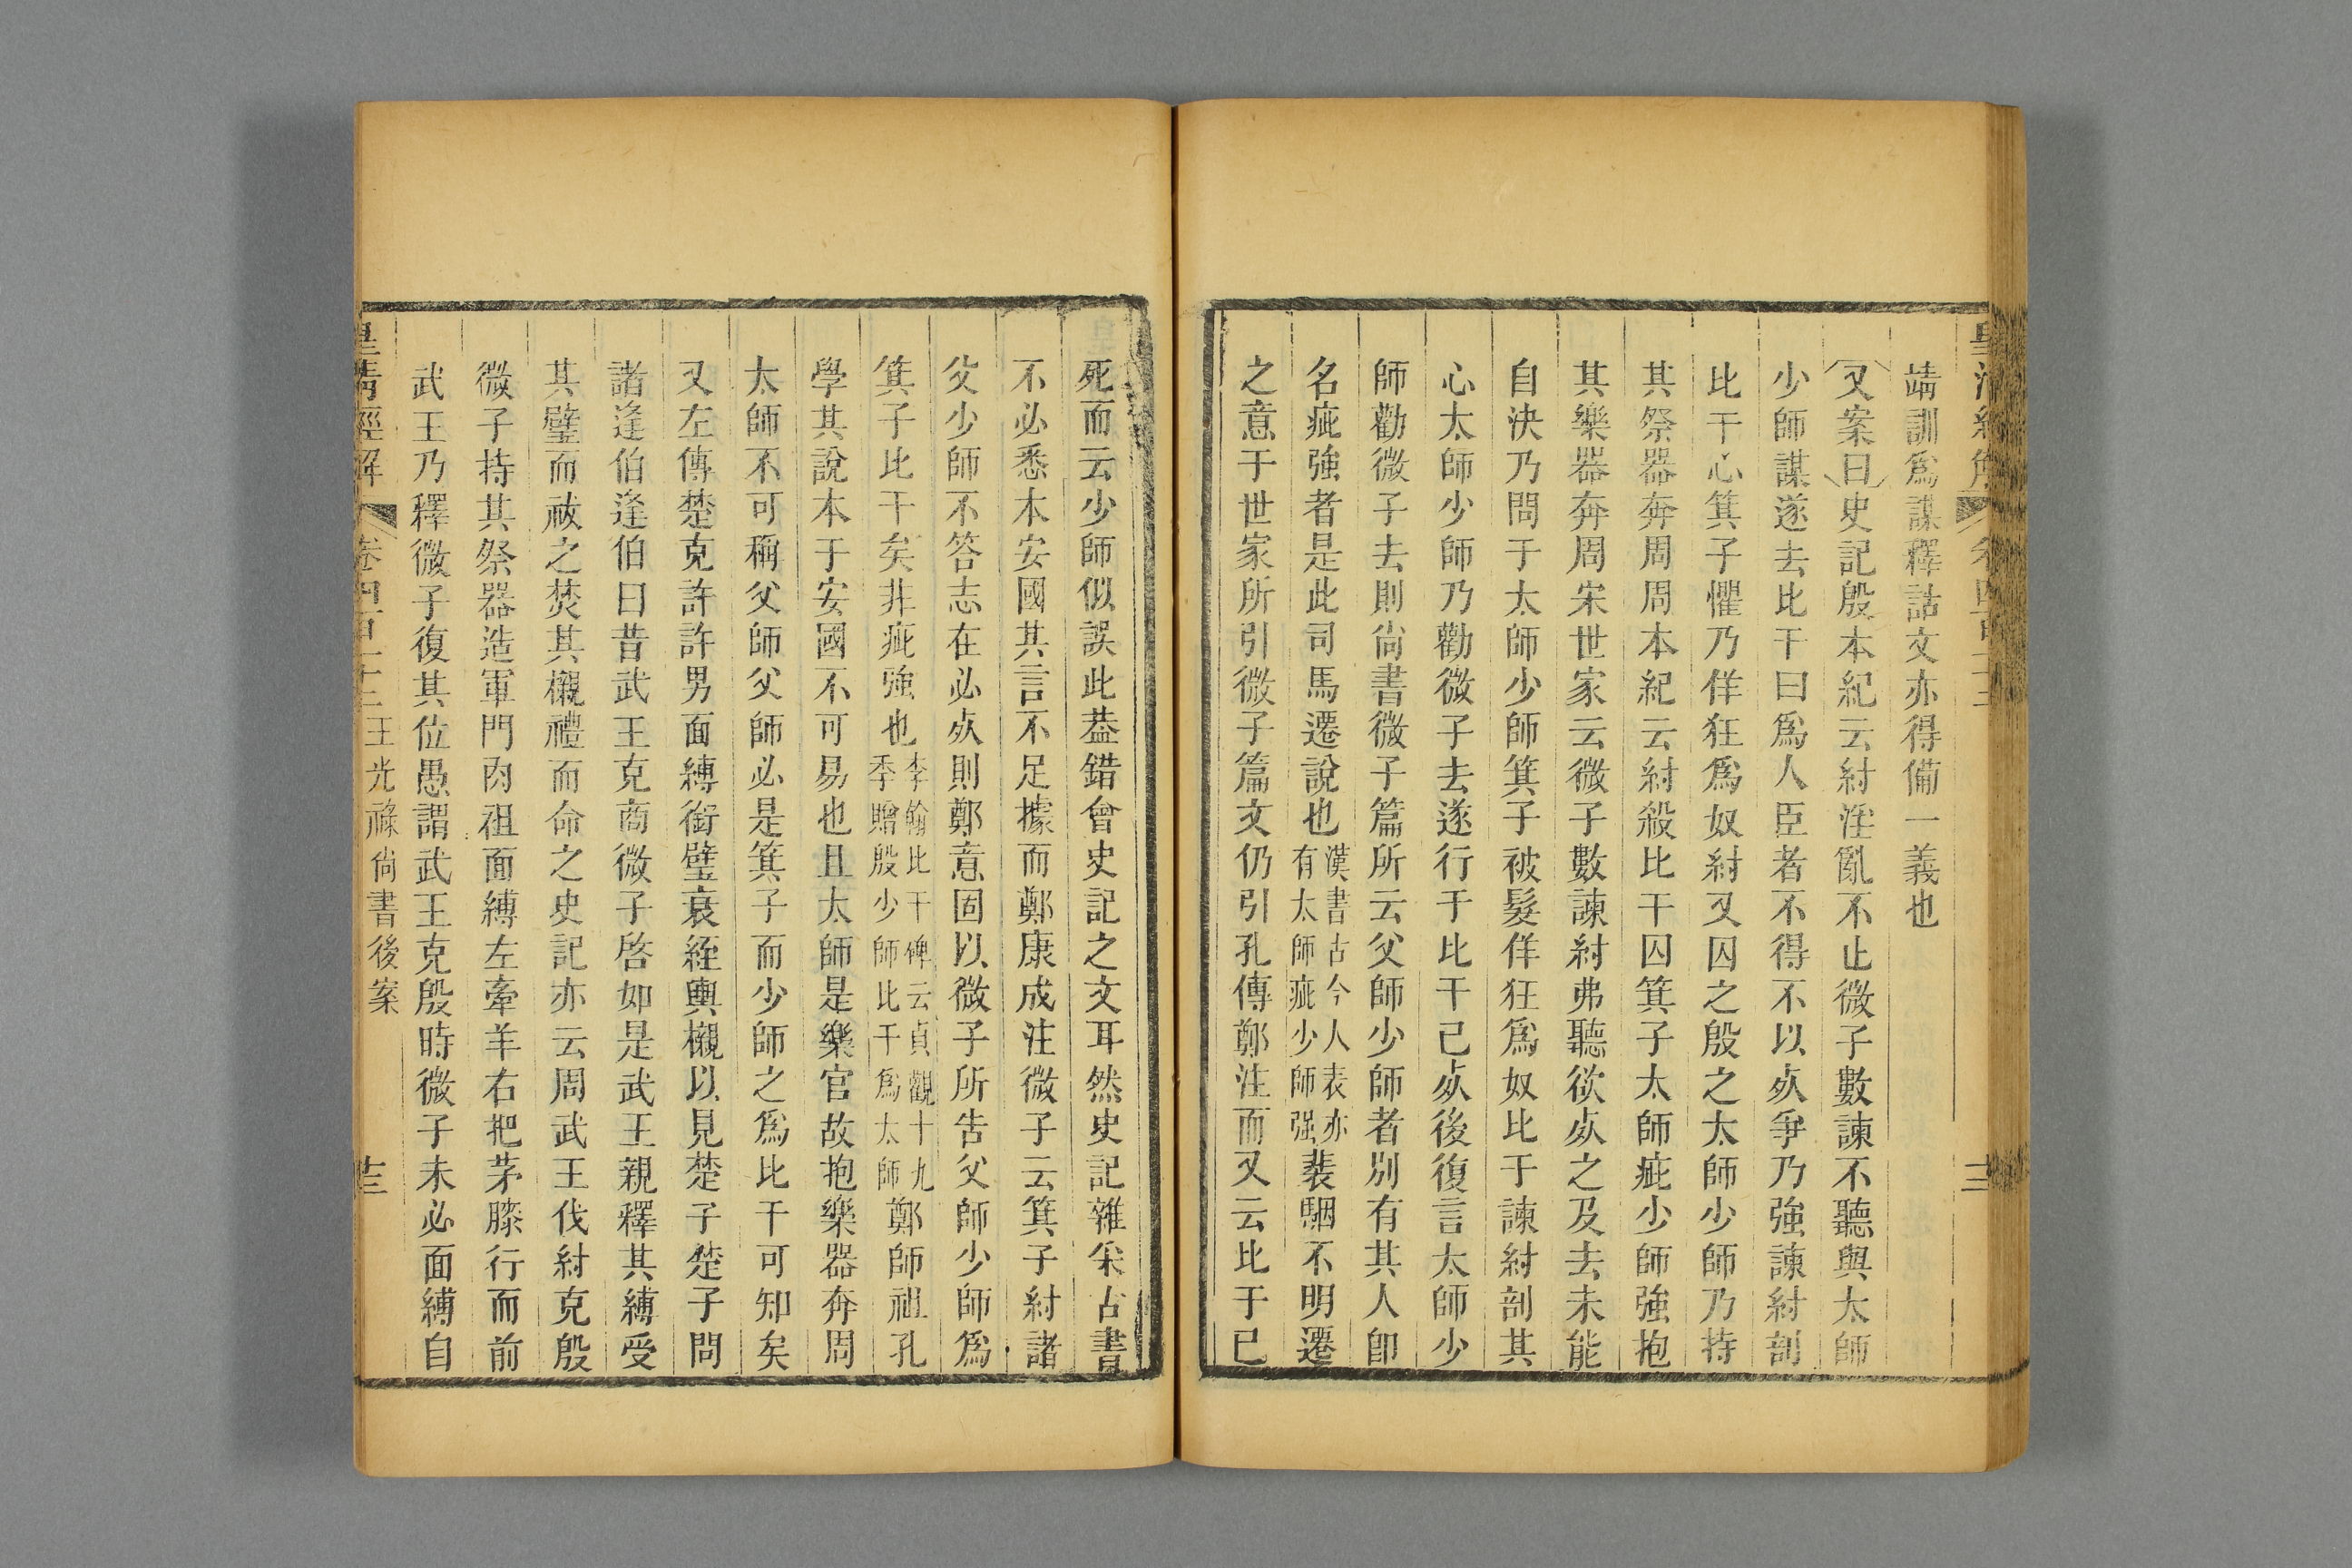 靖訓爲謀釋詁文亦得備一義也
又案曰史記殷本紀云紂淫亂不止微子數諫不聽與太師
少師謀遂去比干曰爲人臣者不得不以㱙爭乃強諫紂剖
比干心箕子懼乃佯狂爲奴紂又囚之殷之太師少師乃持
其祭器奔周周本紀云紂殺比干囚箕子太師疵少師強抱
其樂器奔周宋世家云微子數諫紂弗聽欲㱙之及去未能
自決乃問于太師少師箕子被髮佯狂爲奴比干諫紂剖其
心太師少師乃勸微子去遂行于比干已㱙後復言太師少
師勸微子去則尙書微子篇所云父師少師者別有其人卽
名疵強者是此司馬遷說也漢書古今人表亦有太師疵少師強裴駰不明遷
之意于世家所引微子篇文仍引孔傳鄭注而又云比干已
死而云少師似誤此葢錯會史記之文耳然史記雜采古書
不必悉本安國其言不足據而鄭康成注微子云箕子紂諸
父少師不答志在必㱙則鄭意固以微子所吿父師少師爲
箕子比干矣非疵強也李翰比干碑云貞觀十九季贈殷少師比干爲太師鄭師祖孔
學其說本于安國不可易也且太師是樂官故抱樂器奔周
太師不可稱父師父師必是箕子而少師之爲比干可知矣
又左傳楚克許許男面縛銜璧衰絰輿櫬以見楚子楚子問
諸逢伯逢伯曰昔武王克商微子啓如是武王親釋其縛受
其璧而祓之焚其櫬禮而命之史記亦云周武王伐紂克殷
微子持其祭器造軍門肉袒面縛左牽羊右把茅膝行而前
武王乃釋微子復其位愚謂武王克殷時微子未必面縛自
皇清經解
卷四百十三王光祿尙書後案